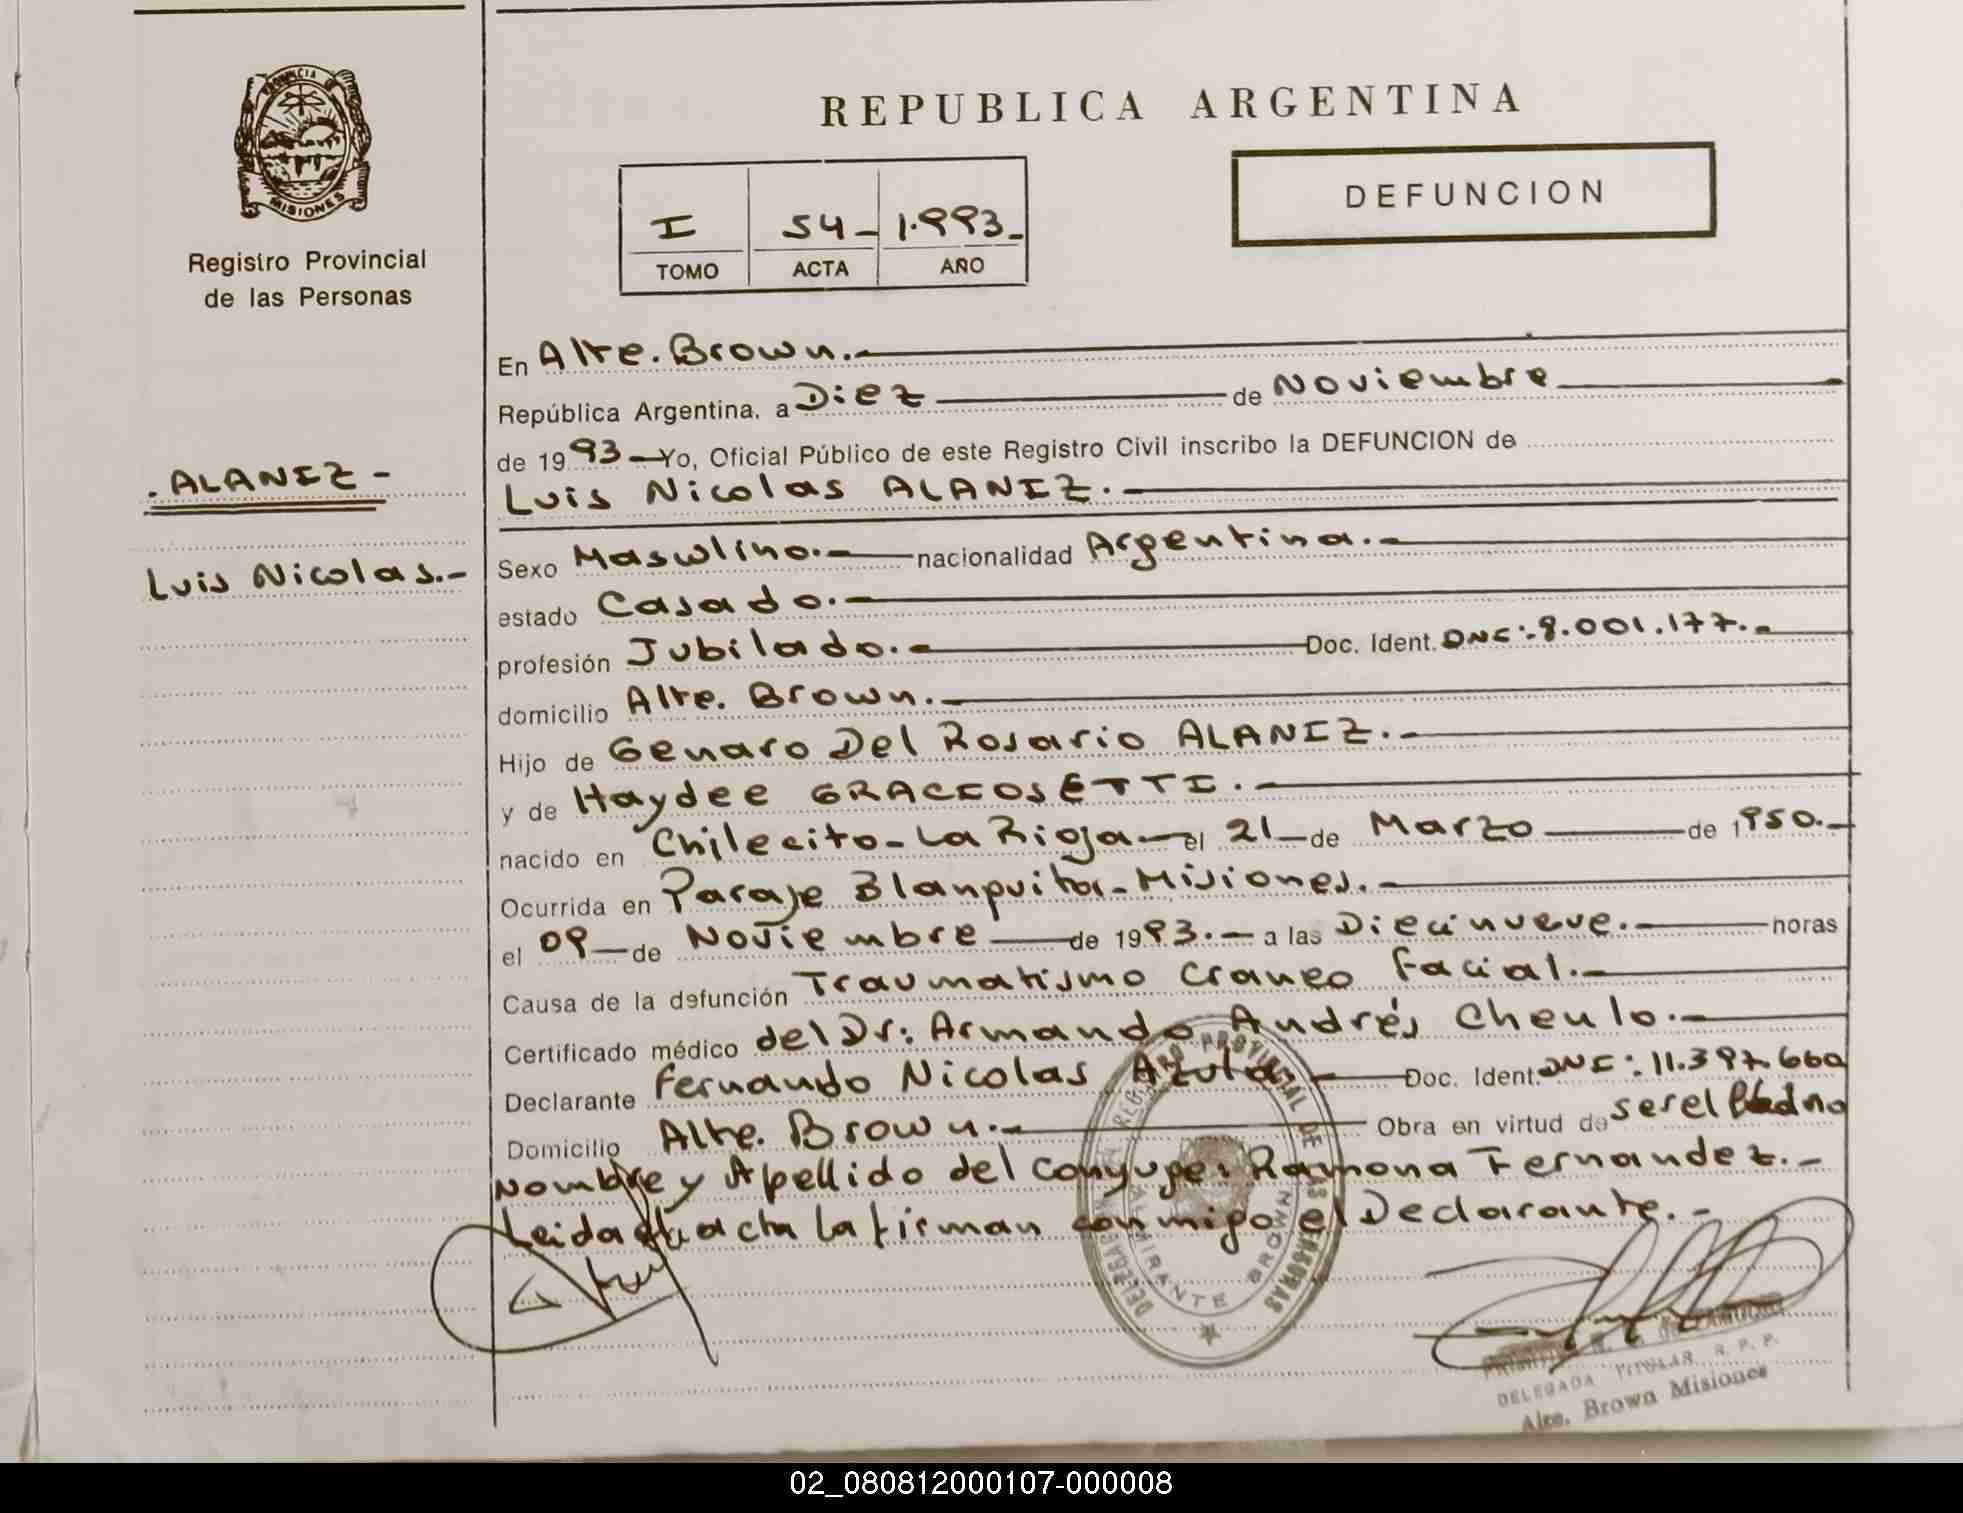 PROVINCIA DE
MISIONES
Registro Provincial
de las Personas
. ALANIZ -
Luis Nicolas.-
REPUBLICA ARGENTINA
I 54- 1.993-
TOMO ACTA AÑO
DEFUNCION
En Alte. Brown.-
República Argentina, a Diez de Noviembre
de 1993 Yo, Oficial Público de este Registro Civil inscribo la DEFUNCION de
Luis Nicolas ALANIZ.
Sexo Masculino.- nacionalidad Argentina.-
estado Casado.-
profesión Jubilado.- Doc. Ident. DNI:-8.001.177.-
domicilio Alte. Brown.-
Hijo de Genaro Del Rosario ALANIZ.-
y de Haydee GRACIOSETTI.-
nacido en Chilecito-La Rioja- el 21 de Marzo de 1950.-
Ocurrida en Paraje Blanquitos-Misiones.-
el 09 de Noviembre de 1993.- a las Diecinueve.- horas
Causa de la defunción Traumatismo Craneo facial.-
Certificado médico del Dr: Armando Andrés Cheulo.-
Declarante Fernando Nicolas - Doc. Ident. DNI: 11.397.660
Domicilio Alte. Brown.- Obra en virtud de ser el
Nombre y Apellido del Conyuge: Ramona Fernandez.-
Leida acta la firman conmigo el Declarante.-
DELEGACION REGISTRO PROVINCIAL DE LAS PERSONAS
ALMIRANTE BROWN
DELEGADA TITULAR R. P. P.
Alte. Brown Misiones
02_080812000107-000008